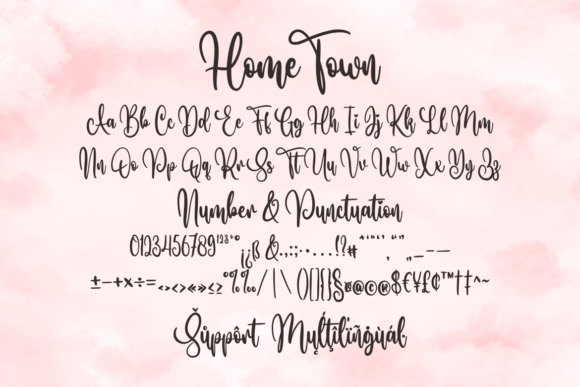 Home Town
Aa Bb Cc Dd Ee Ff Gg Hh Ii Jj Kk Ll Mm
Nn Oo Pp Qq Rr Ss Tt Uu Vv Ww Xx Yy Zz
Number & Punctuation
0123456789¹²³⁴ªº
¡¿ß&.,:;·•…!?#
±−+×÷=‹›<>«»≤≥°%‰/|\()[]{}§¤@©®$€¥£¢™†‡^~
Šůppôrt Mųĺťįlīñġùáł